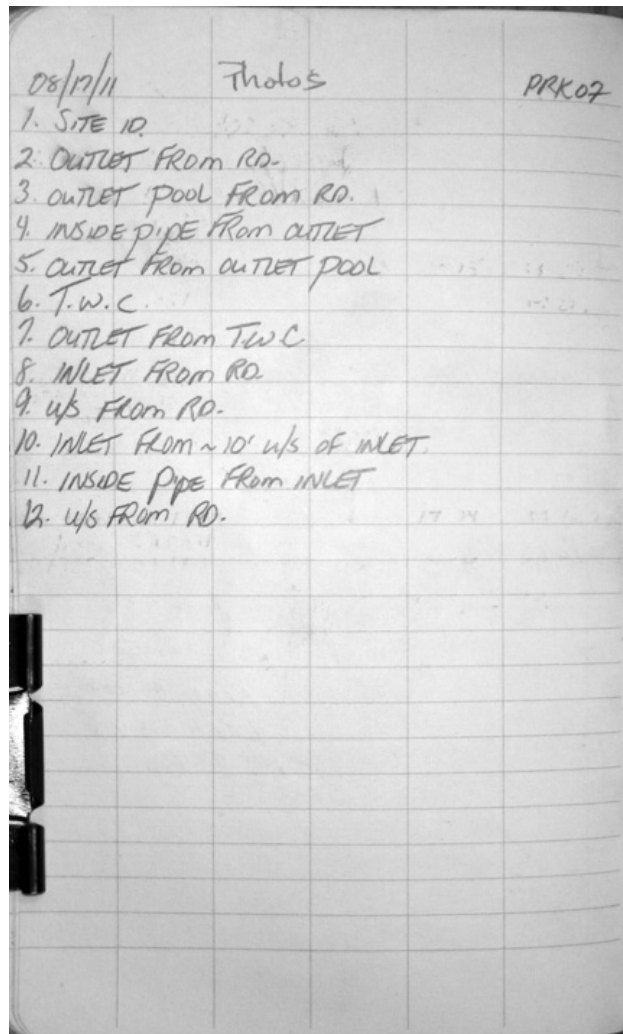 08/17/11 Photos PRK07
1. SITE ID.
2. OUTLET FROM RD.
3. OUTLET POOL FROM RD.
4. INSIDE PIPE FROM OUTLET
5. OUTLET FROM OUTLET POOL
6. T.W.C.
7. OUTLET FROM TWC
8. INLET FROM RD
9. U/S FROM RD.
10. INLET FROM ~10' U/S OF INLET
11. INSIDE PIPE FROM INLET
12. U/S FROM RD.